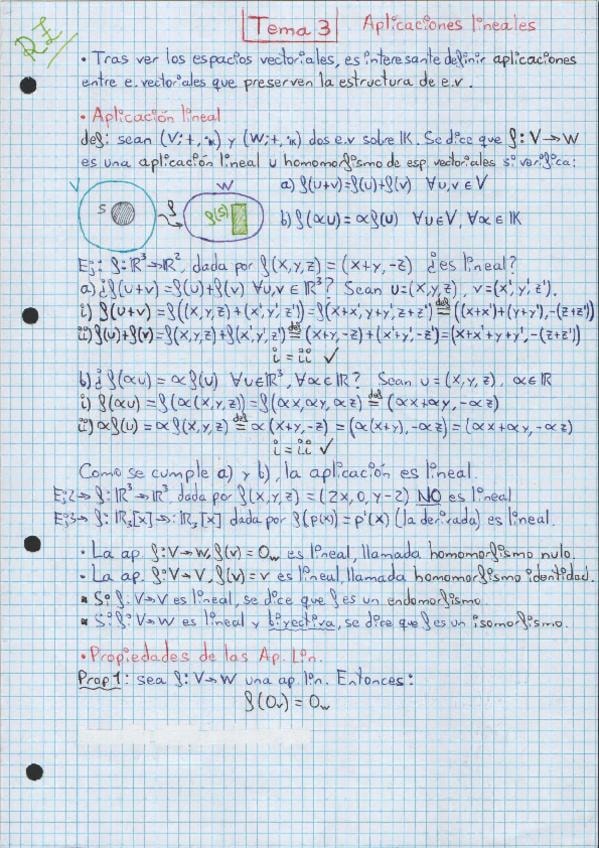 RZ
Tema 3 Aplicaciones lineales
• Tras ver los espacios vectoriales, es interesante definir aplicaciones
entre e.vectoriales que preserven la estructura de e.v.
• Aplicación lineal
def: sean (V,+,·K) y (W,+,·K) dos e.v sobre K. Se dice que f: V→W
es una aplicación lineal u homomorfismo de esp. vectoriales si verifica:
V S f W f(S)
a) f(u+v)=f(u)+f(v) ∀u,v∈V
b) f(αu) = αf(u) ∀u∈V, ∀α∈K
Ej: f: ℝ³→ℝ², dada por f(x,y,z) = (x+y,-z) ¿es lineal?
a) ¿f(u+v)=f(u)+f(v) ∀u,v∈ℝ³? Sean u=(x,y,z), v=(x',y',z').
i) f(u+v) = f((x,y,z)+(x',y',z'))=f(x+x',y+y',z+z') def= ((x+x')+(y+y'),-(z+z'))
ii) f(u)+f(v)=f(x,y,z)+f(x',y',z') def= (x+y,-z)+(x'+y',-z')=(x+x'+y+y',-(z+z'))
i = ii ✓
b) ¿f(αu) = αf(u) ∀u∈ℝ³, ∀α∈ℝ? Sean u=(x,y,z), α∈ℝ
i) f(αu) = f(α(x,y,z))=f(αx,αy,αz) def= (αx+αy,-αz)
ii) αf(u) = αf(x,y,z) def= α(x+y,-z) = (α(x+y),-αz) = (αx+αy,-αz)
i = ii ✓
Como se cumple a) y b), la aplicación es lineal.
Ej:2→ f: ℝ³→ℝ³, dada por f(x,y,z)=(2x,0,y-2) NO es lineal
Ej:3→ f: ℝ₃[x]→: ℝ₃[x] dada por f(p(x))=p'(x) (la derivada) es lineal.
• La ap. f:V→W, f(v)=0w es lineal, llamada homomorfismo nulo.
• La ap. f:V→V, f(v)=v es lineal llamada homomorfismo identidad.
▪ Si f:V→V es lineal, se dice que f es un endomorfismo.
▪ Si f:V→W es lineal y biyectiva, se dice que f es un isomorfismo.
• Propiedades de las Ap. Lin.
Prop 1: sea f:V→W una ap. lin. Entonces:
f(0v) = 0w